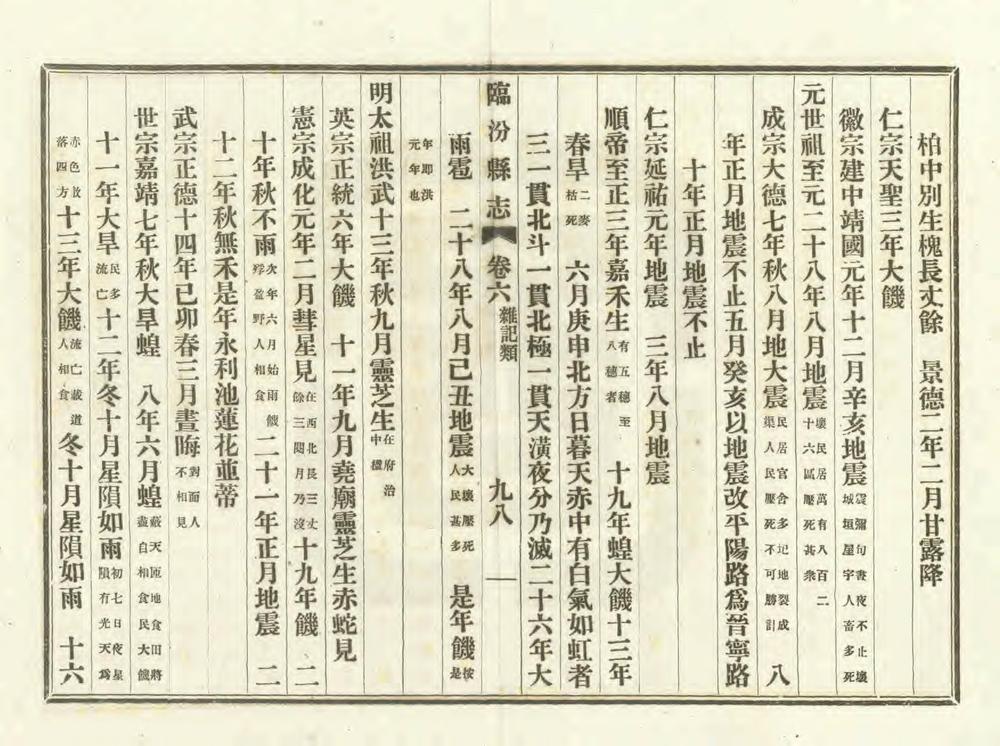 柏中別生槐長丈餘　景德二年二月甘露降
仁宗天聖三年大饑
徽宗建中靖國元年十二月辛亥地震震彌旬晝夜不止壞城垣屋宇人畜多死
元世祖至元二十八年八月地震壞民居萬有八百二十六區壓死甚衆
成宗大德七年秋八月地大震民居官舍多圮地裂成渠人民壓死不可勝計　八
年正月地震不止五月癸亥以地震改平陽路爲晉寧路
十年正月地震不止
仁宗延祐元年地震　三年八月地震
順帝至正三年嘉禾生有五穗至八穗者　十九年蝗大饑十三年
春旱二麥枯死　六月庚申北方日暮天赤中有白氣如虹者
三一貫北斗一貫北極一貫天潢夜分乃滅二十六年大
臨汾縣志　卷六雜記類　九八
雨雹　二十八年八月己丑地震大壞壓死人民甚多　是年饑按是
年即洪元年也
明太祖洪武十三年秋九月靈芝生在府治中櫃
英宗正統六年大饑　十一年九月堯廟靈芝生赤蛇見
憲宗成化元年二月彗星見在西北長三丈餘三閱月乃沒十九年饑　二
十年秋不雨次年六月始雨餓殍盈野人相食二十一年正月地震　二
十二年秋無禾是年永利池蓮花並蒂
武宗正德十四年己卯春三月晝晦對面人不相見
世宗嘉靖七年秋大旱蝗　八年六月蝗蔽天匝地食田將盡自相食民大饑
十一年大旱民多流亡十二年冬十月星隕如雨初七日夜星隕有光天爲
赤色散落四方十三年大饑流亡載道人相食冬十月星隕如雨　十六